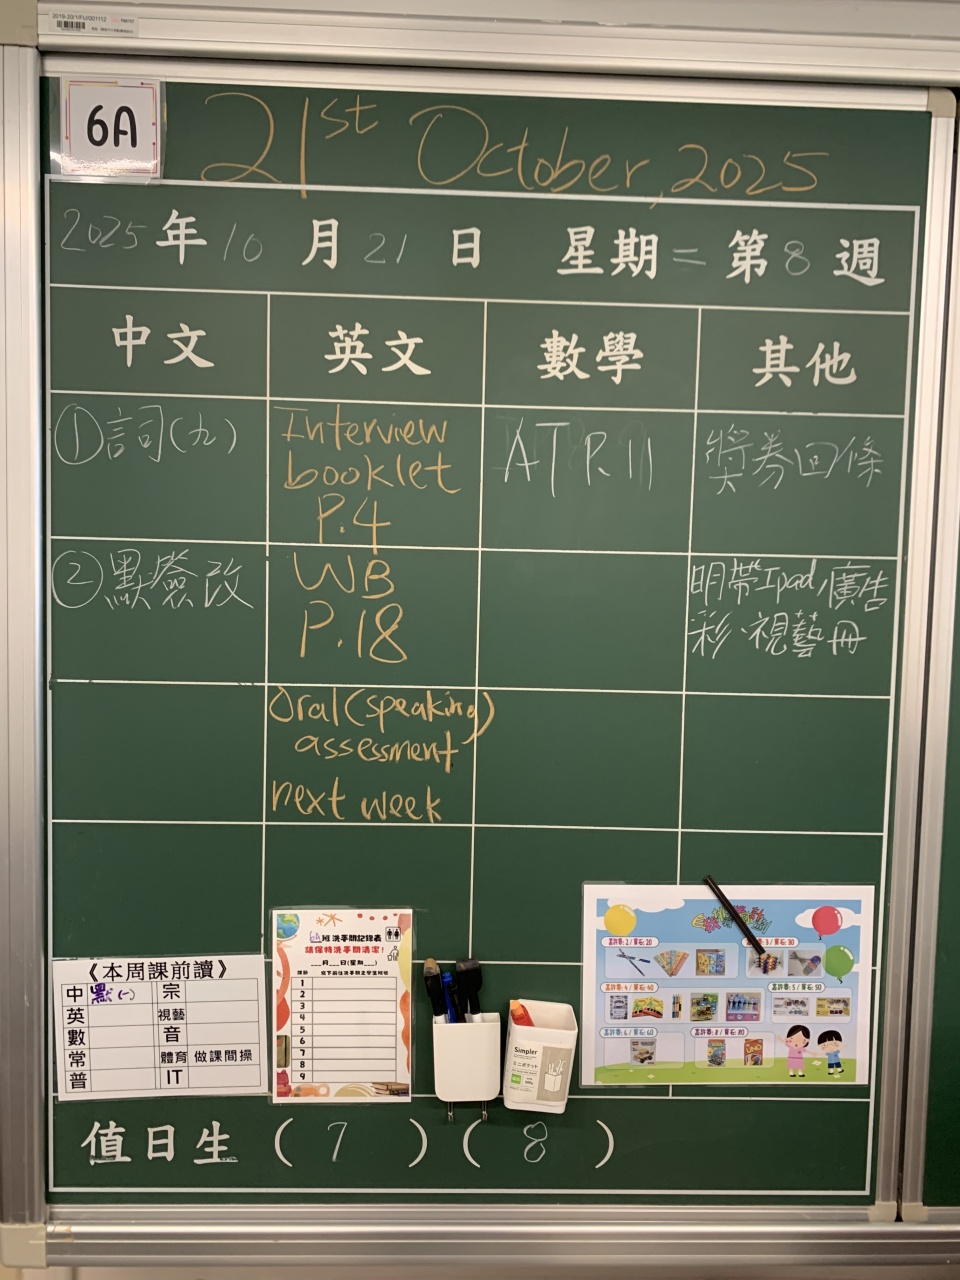 2019-20/1/FU/001112
6A
21st October, 2025
2025年10月21日 星期二第8週
中文 英文 數學 其他
①詞(九)
Interview
booklet
P.4
AT P.11
獎券回條
②默簽改
WB
P.18
明帶Ipad/廣告
彩、視藝冊
Oral(speaking)
assessment
next week
《本周課前讀》
中 默(一) 宗
英 視藝
數 音
常 體育 做課間操
普 IT
6A班洗手間記錄表
請保持洗手間清潔!
___月___日(星期___)
1
2
3
4
5
6
7
8
9
Simpler
ミニポケット
值日生 (7) (8)